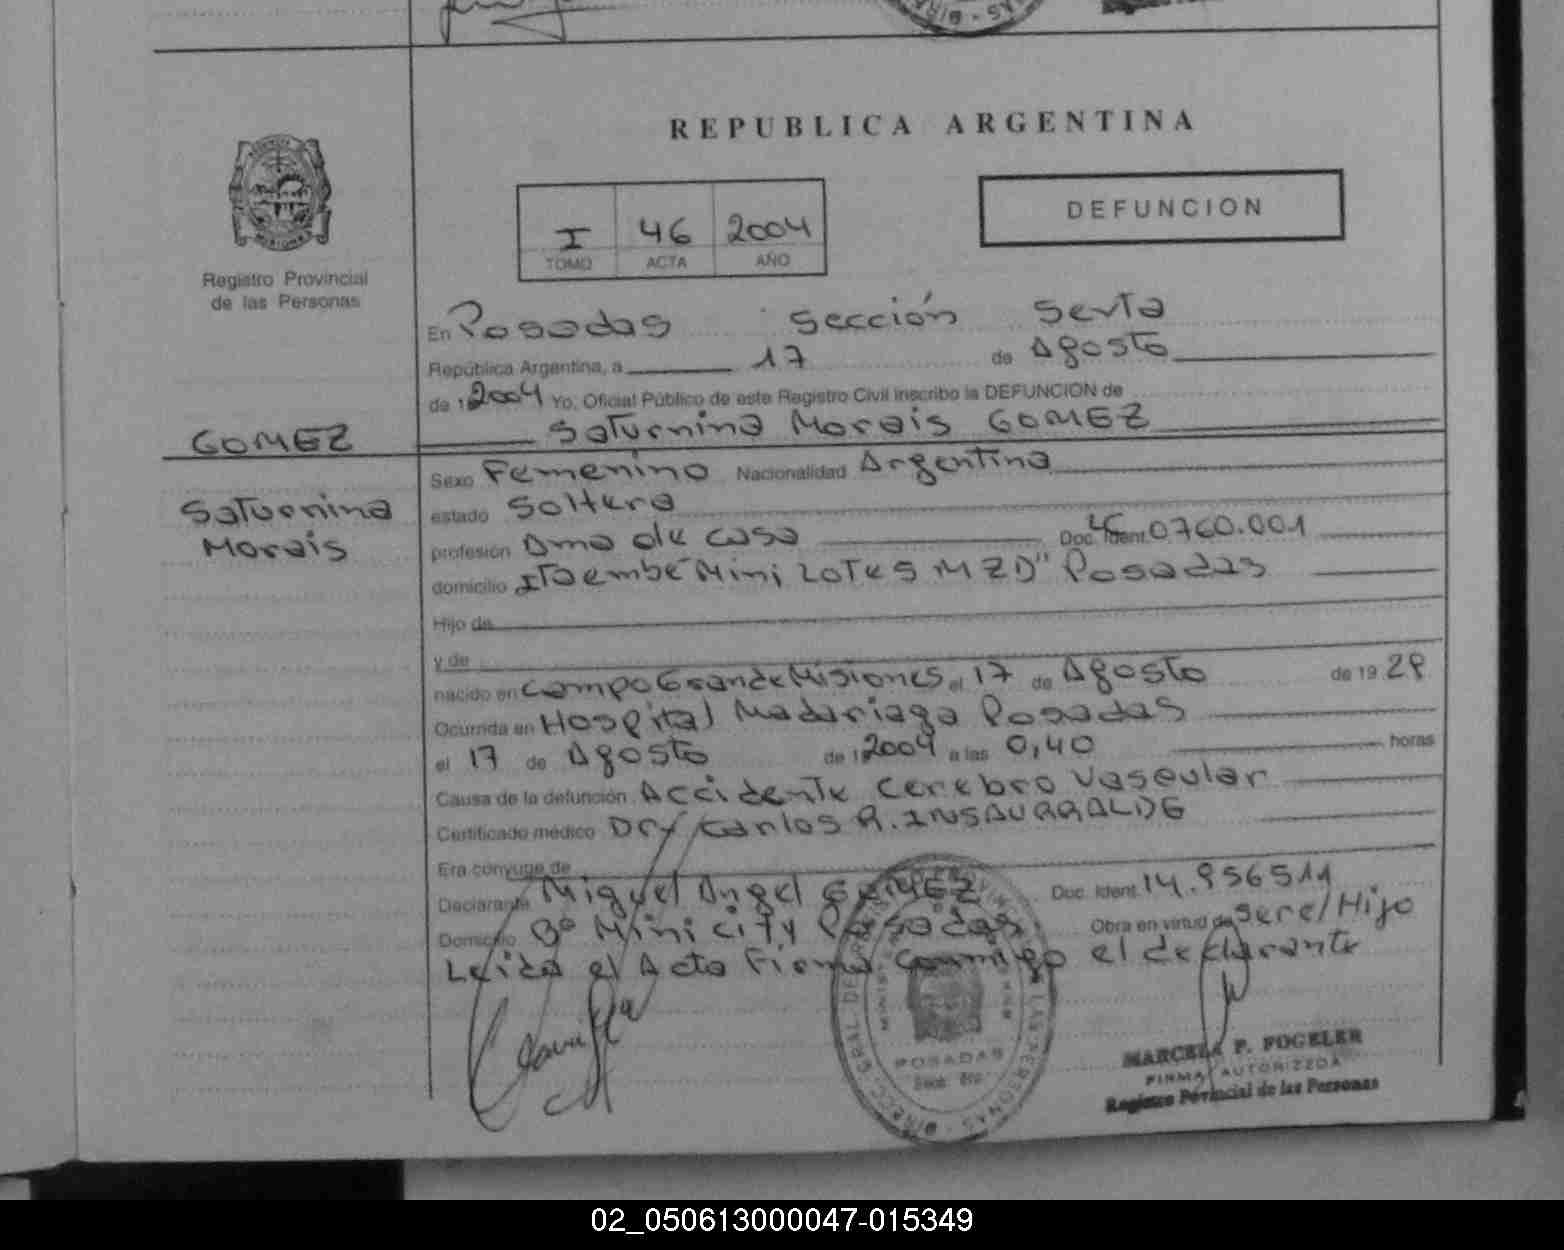 REPUBLICA ARGENTINA
DEFUNCION
I 46 2004
TOMO ACTA AÑO
Registro Provincial
de las Personas
En Posadas Sección Sexta
República Argentina, a 17 de Agosto
de 1 2004 Yo, Oficial Público de este Registro Civil inscribo la DEFUNCION de
GOMEZ
Saturnina Morais GOMEZ
Saturnina
Morais
Sexo Femenino Nacionalidad Argentina
estado Soltera
profesión Ama de casa Doc. Ident. 0760.001
domicilio Itaembé Mini Lotes MZ D" Posadas
Hijo de
y de
nacido en Campo Grande Misiones el 17 de Agosto de 19 28
Ocurrida en Hospital Madariaga Posadas
el 17 de Agosto de 1 2004 a las 0,40 horas
Causa de la defunción Accidente Cerebro Vascular
Certificado médico Dr/ Carlos R. INSAURRALDE
Era cónyuge de
Declarante Miguel Angel GOMEZ Doc. Ident. 14.956511
Domicilio Bº Mini City Posadas Obra en virtud de Ser el Hijo
Leida el Acta Firma Conmigo el declarante
POSADAS
MARCELA F. FOGELER
FIRMA AUTORIZADA
Registro Provincial de las Personas
02_050613000047-015349